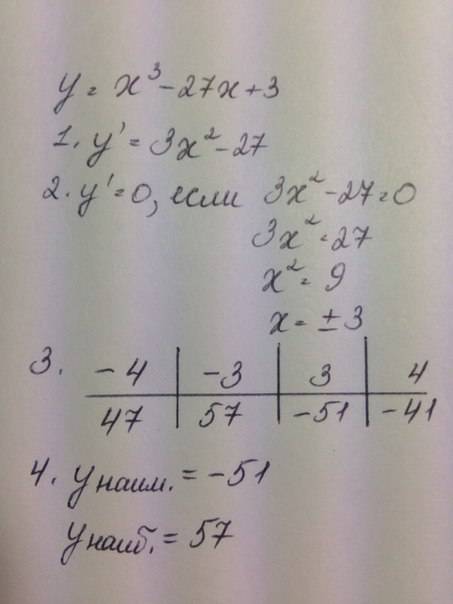 y = x³ - 27x + 3
1. y' = 3x² - 27
2. y' = 0, если 3x² - 27 = 0
3x² = 27
x² = 9
x = ± 3
3. -4 | -3 | 3 | 4
47 | 57 | -51 | -41
4. y наим. = -51
y наиб. = 57